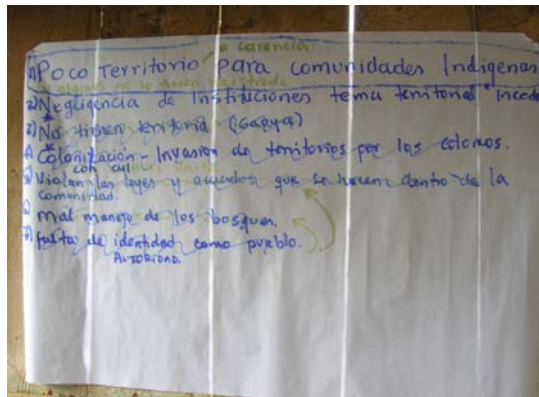 o carencia
1) Poco Territorio Para comunidades Indigenas
algunos no lo tienen registrado
2) Negligencia de Instituciones tema territorial Incode
3) No tienen territorio (Gaguya)
4) Colonización - Invasion de territorios por los colonos.
con cultivos
5) Violan las leyes y acuerdos que se hacen dentro de la
comunidad.
6) Mal manejo de los bosques.
7) falta de identidad como pueblo.